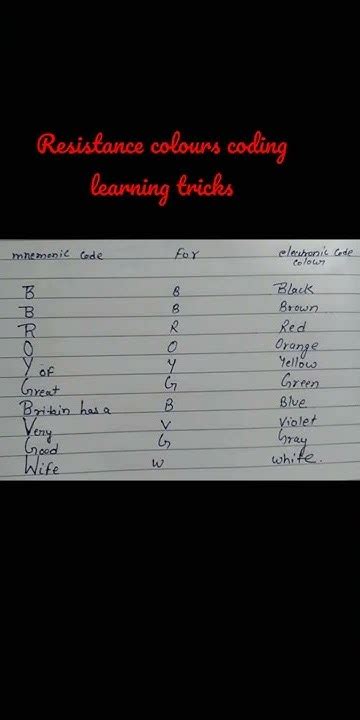 Resistance colours coding
learning tricks
mnemonic code For electronic code
colour
B B Black
B B Brown
R R Red
O O Orange
Y of Y Yellow
Great G Green
Britain has a B Blue
Very V Violet
Good G Gray
Wife W white.